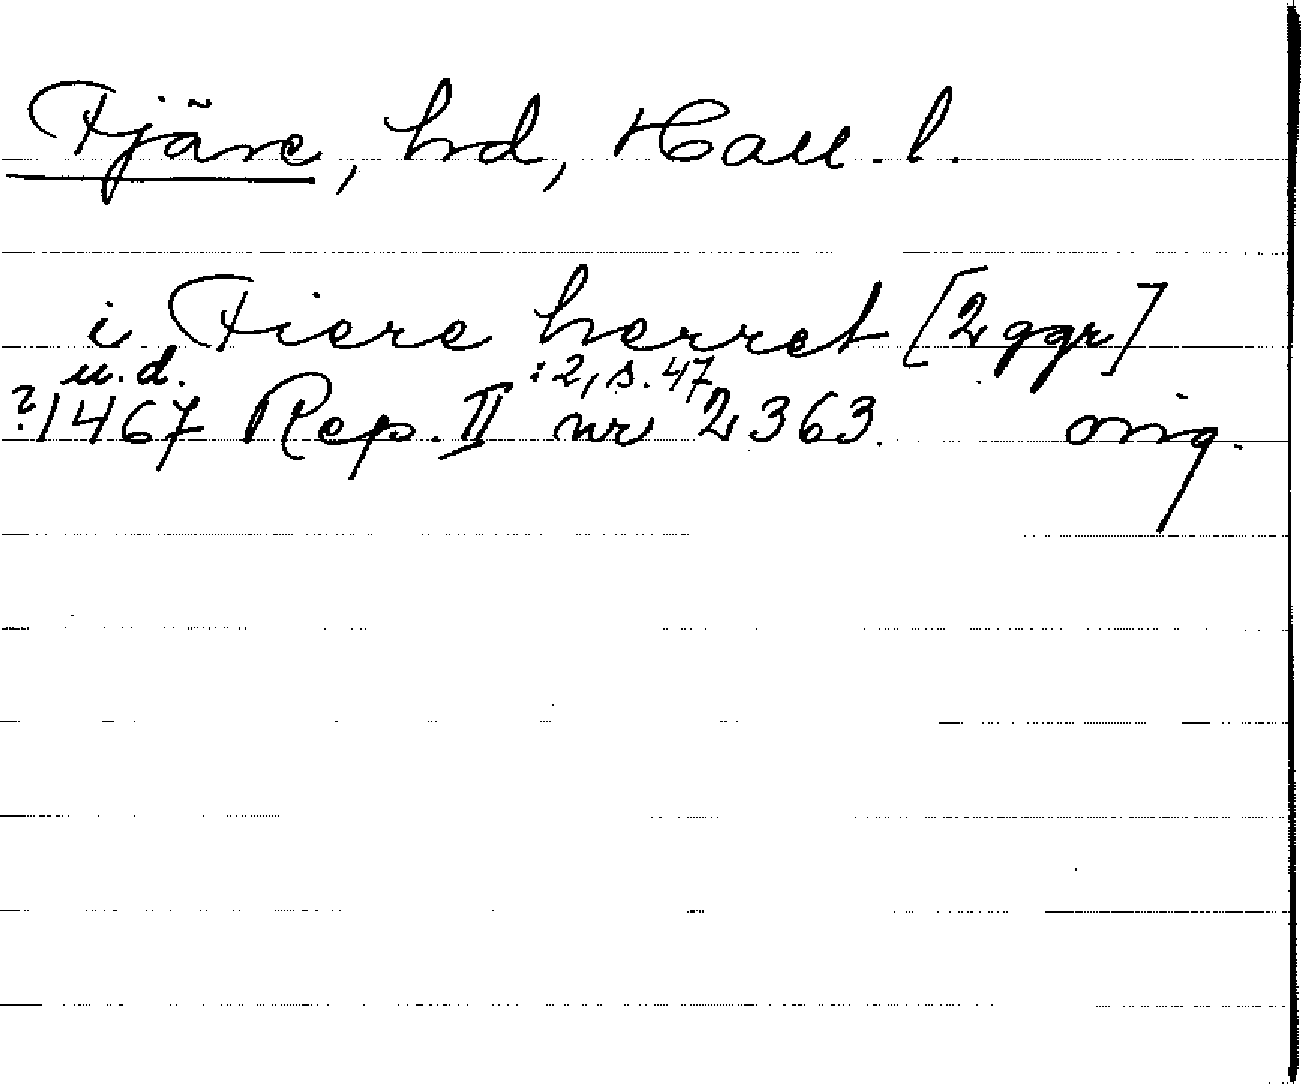 Fjäre, hd, Hall. l.
i Fiere herret [2 ggr]
u. d. :2, s. 47
?1467 Rep. II nr 2363. orig.